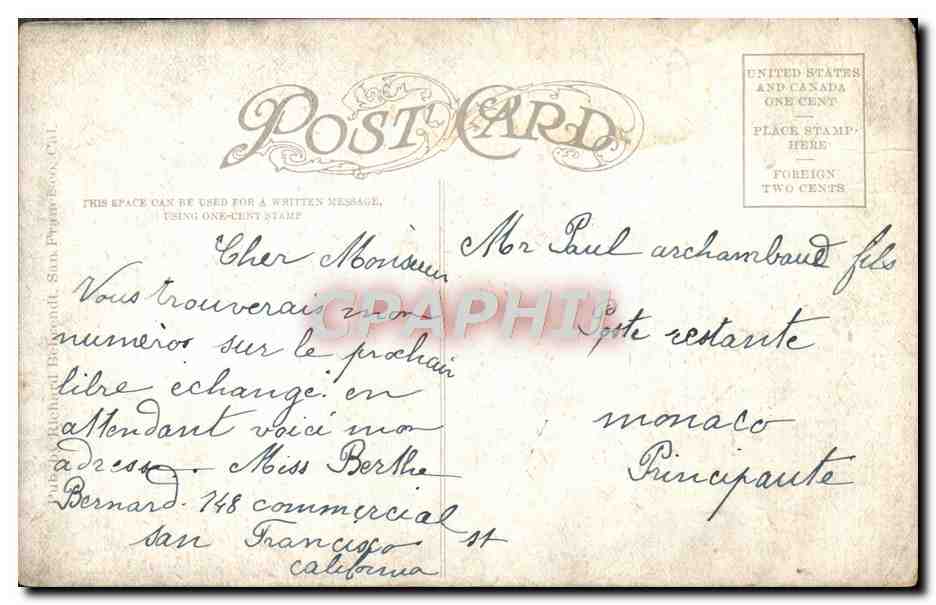 POST CARD
UNITED STATES
AND CANADA
ONE CENT
PLACE STAMP
HERE
FOREIGN
TWO CENTS
THIS SPACE CAN BE USED FOR A WRITTEN MESSAGE,
USING ONE-CENT STAMP
Pub. by Richard Behrendt, San Francisco, Cal.
Cher Monsieur
Vous trouverais mon
numéro sur le prochain
libre échange. en
attendant voici mon
adress. Miss Berthe
Bernard. 148 commercial st
san Francisco
california
Mr Paul archambaud fils
Poste restante
monaco
Principauté
CPAPHIL